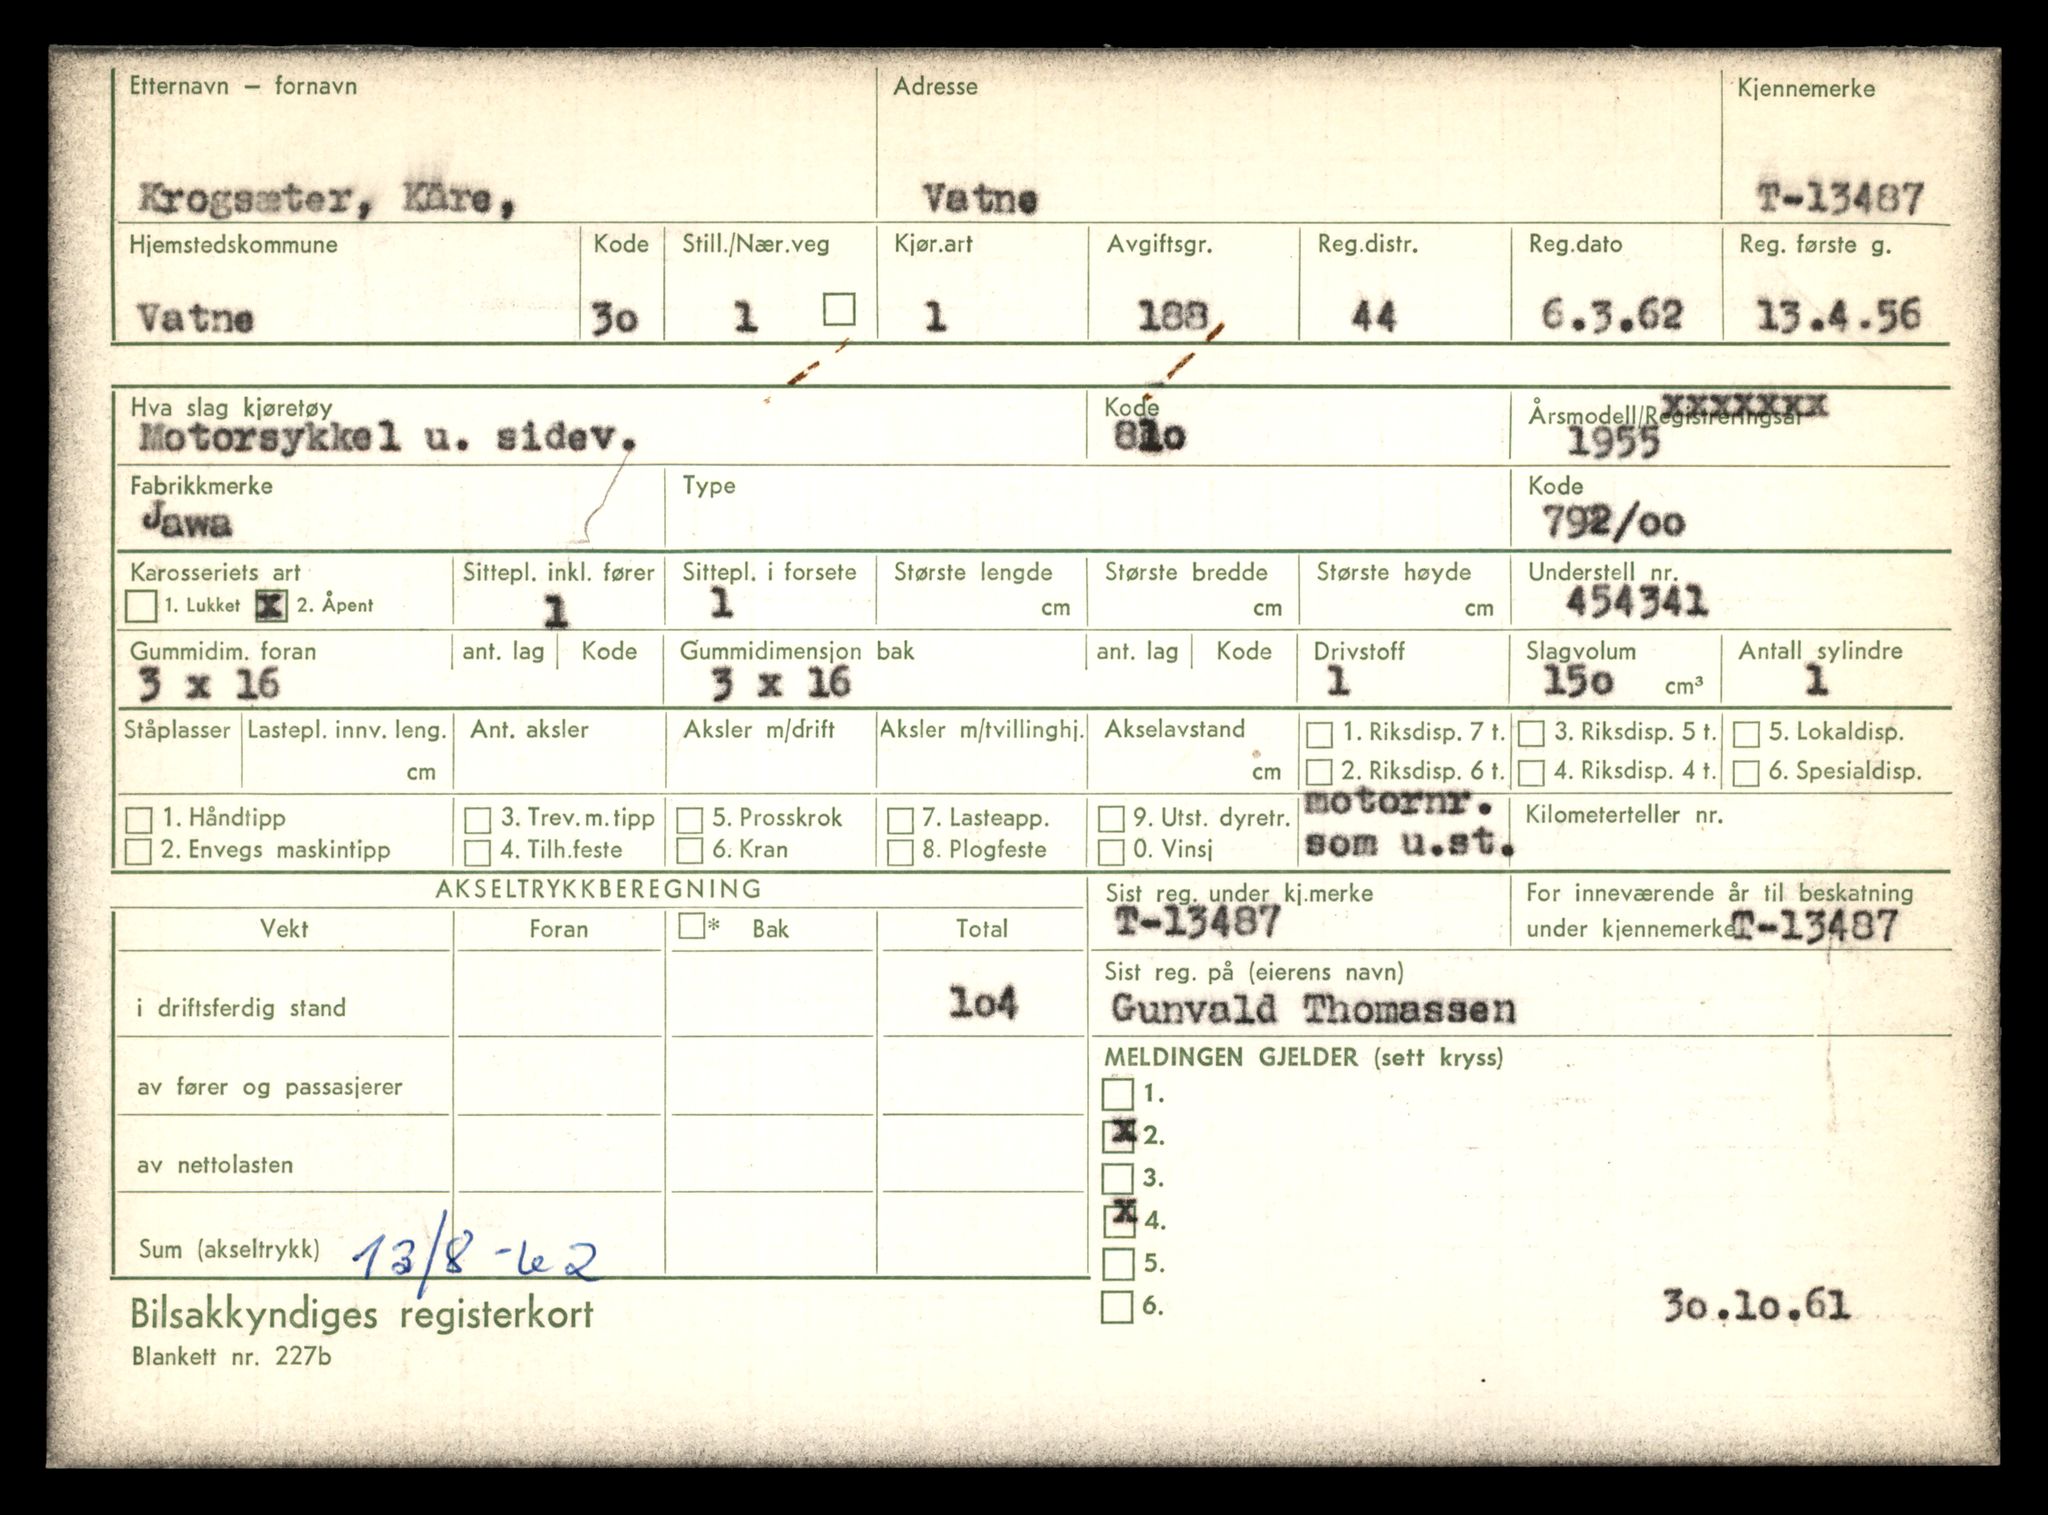 Etternavn – fornavn Adresse Kjennemerke
Krogsæter, Kåre, Vatne T-13487
Hjemstedskommune Kode Still./Nær.veg Kjør.art Avgiftsgr. Reg.distr. Reg.dato Reg. første g.
Vatne 3o 1 1 188 44 6.3.62 13.4.56
Hva slag kjøretøy Kode Årsmodell/Registreringsår xxxxxxx
Motorsykkel u. sidev. 81o 1955
Fabrikkmerke Type Kode
Jawa 792/oo
Karosseriets art Sittepl. inkl. fører Sittepl. i forsete Største lengde Største bredde Største høyde Understell nr.
1. Lukket x 2. Åpent 1 1 cm cm cm 454341
Gummidim. foran ant. lag Kode Gummidimensjon bak ant. lag Kode Drivstoff Slagvolum Antall sylindre
3 x 16 3 x 16 1 15o cm³ 1
Ståplasser Lastepl. innv. leng. Ant. aksler Aksler m/drift Aksler m/tvillinghj. Akselavstand 1. Riksdisp. 7 t. 3. Riksdisp. 5 t. 5. Lokaldisp.
cm cm 2. Riksdisp. 6 t. 4. Riksdisp. 4 t. 6. Spesialdisp.
1. Håndtipp 3. Trev.m.tipp 5. Prosskrok 7. Lasteapp. 9. Utst. dyretr. motornr. Kilometerteller nr.
2. Envegs maskintipp 4. Tilh.feste 6. Kran 8. Plogfeste 0. Vinsj som u.st.
AKSELTRYKKBEREGNING Sist reg. under kj.merke For inneværende år til beskatning
Vekt Foran * Bak Total T-13487 under kjennemerke T-13487
Sist reg. på (eierens navn)
i driftsferdig stand 1o4 Gunvald Thomassen
MELDINGEN GJELDER (sett kryss)
av fører og passasjerer 1.
x 2.
av nettolasten 3.
x 4.
Sum (akseltrykk) 13/8-62 5.
Bilsakkyndiges registerkort 6. 3o.1o.61
Blankett nr. 227b